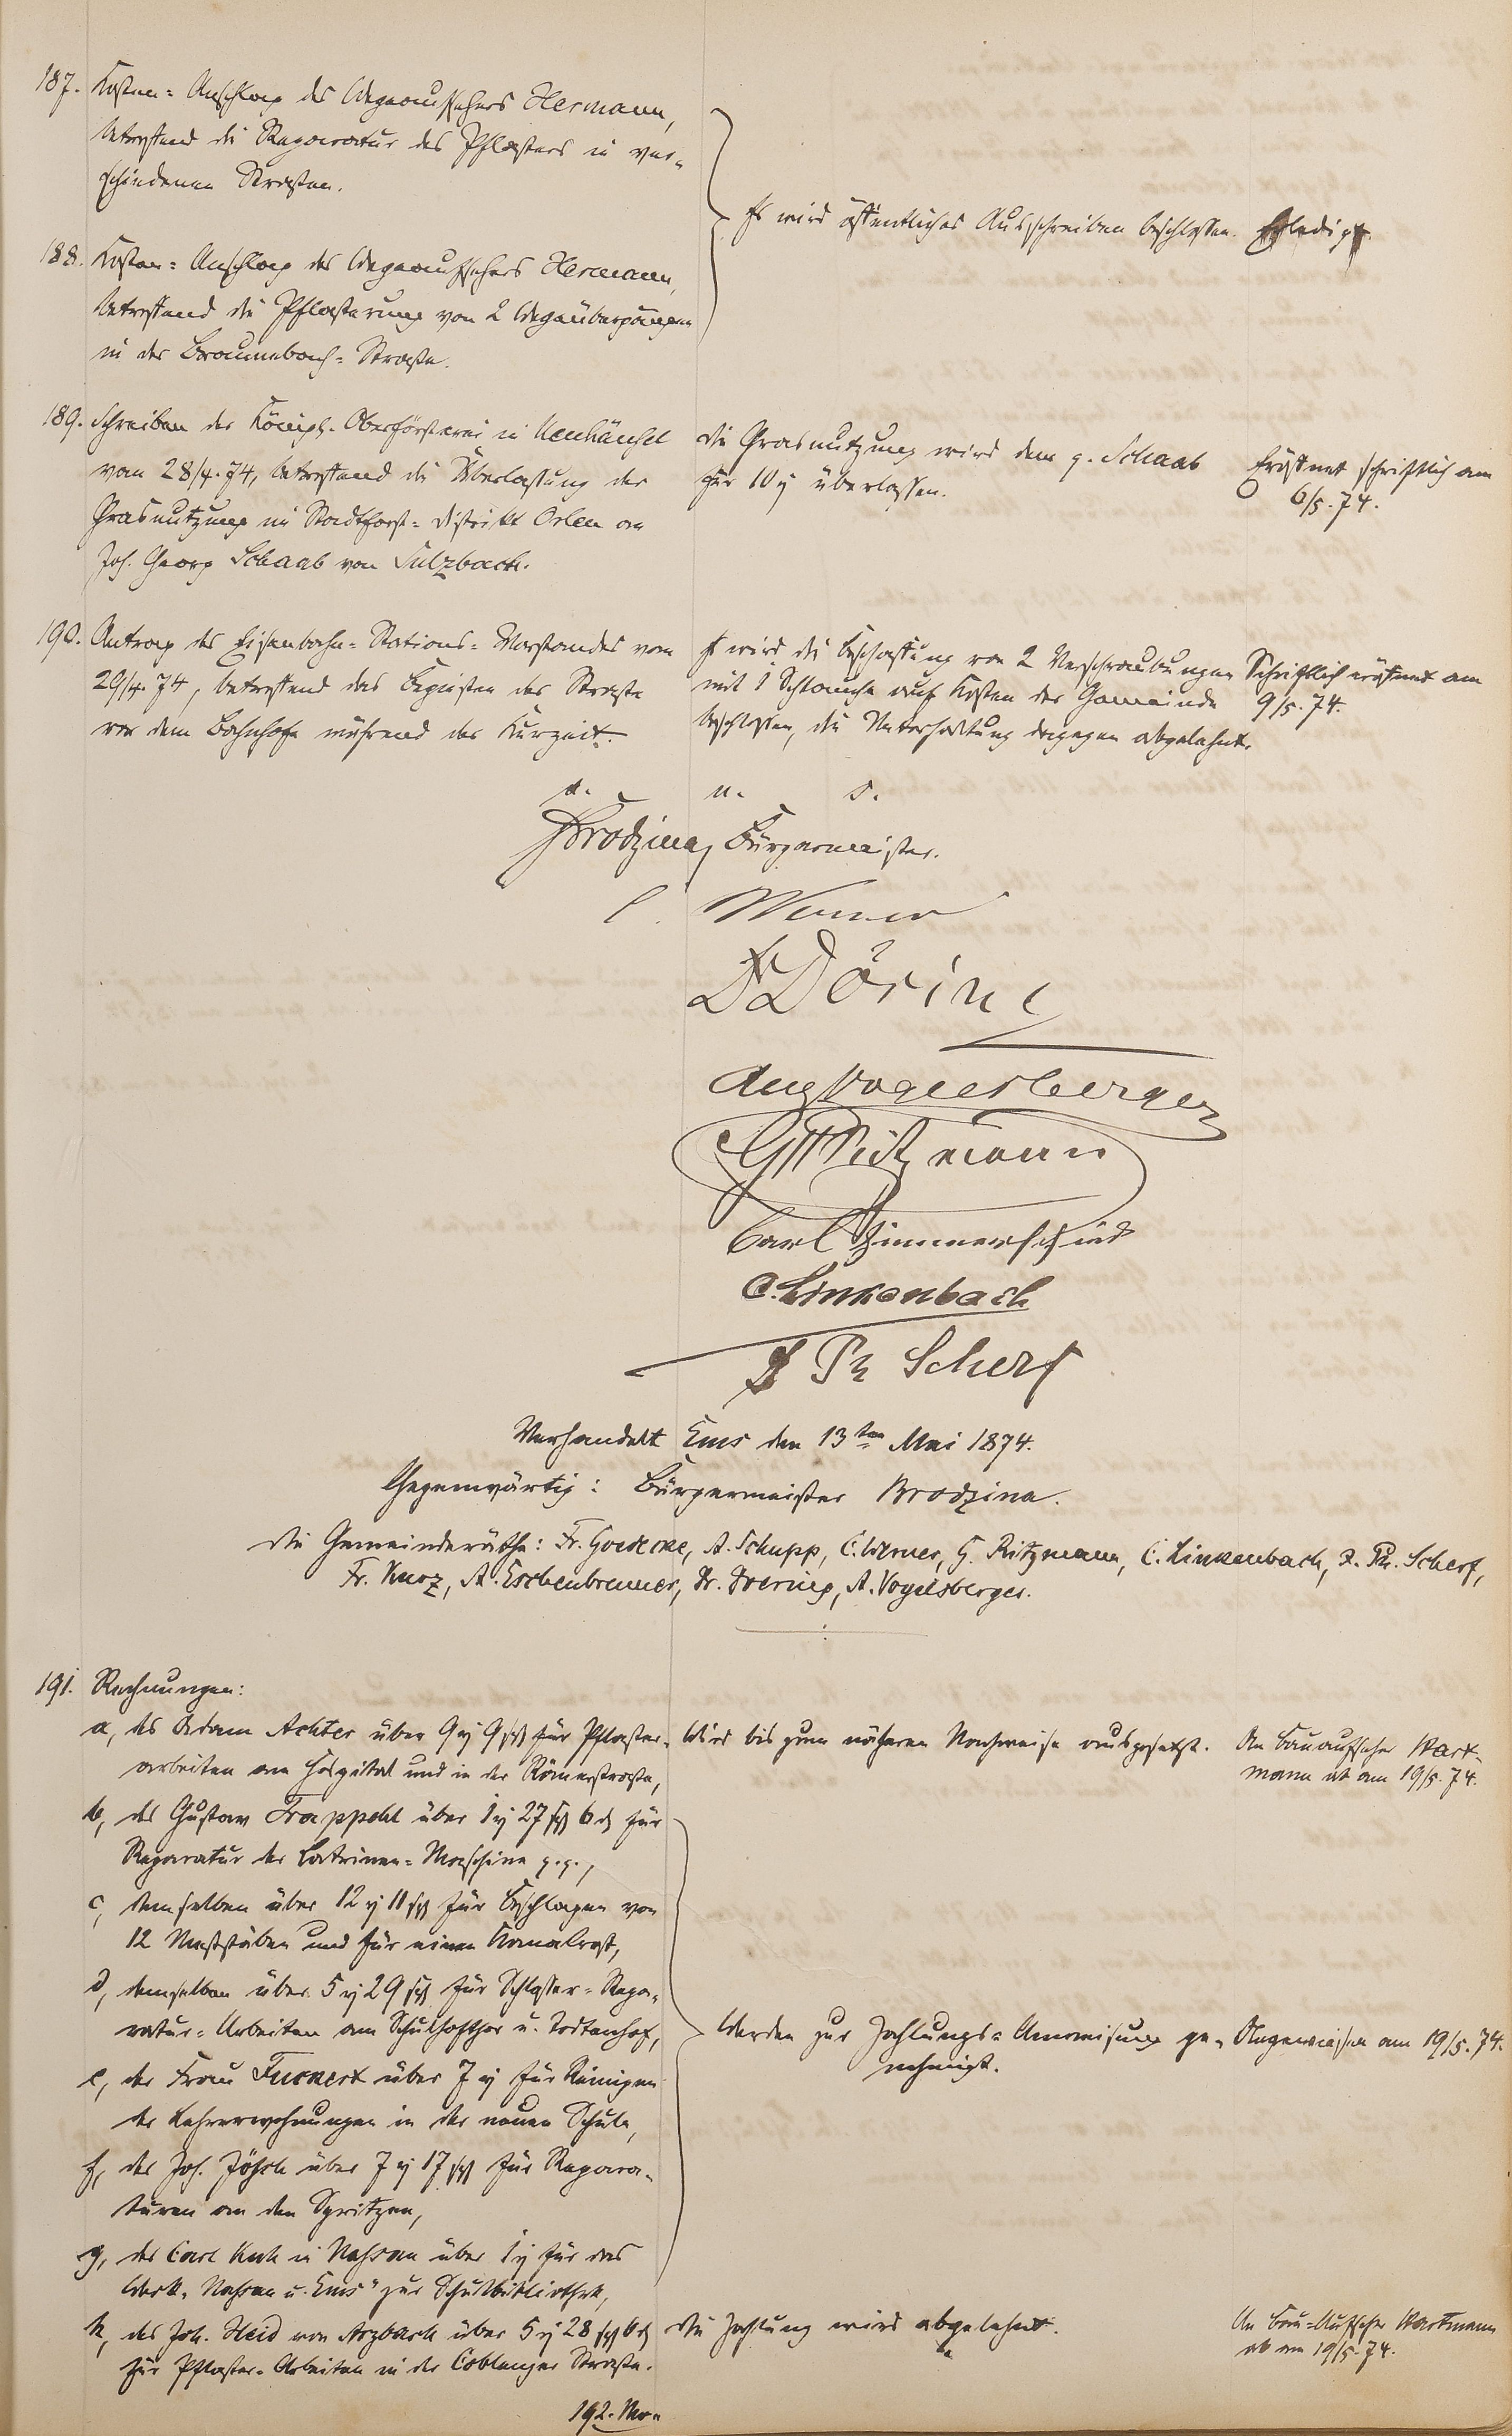 187. Kosten-Anschlag des Wegeaufsehers Hermann,
betreffend die Reparatur des Pflasters in ver-
schiedenen Straßen.
188. Kosten-Anschlag des Wegeaufsehers Hermann,
betreffend die Pflasterung von 2 Wegeübergängen
in der Braunebach-Straße.
Es wird öffentliches Ausschreiben beschlossen. Erledigt.
189. Schreiben der Königl. Oberförsterei in Neuhäusel
vom 28/4. 74, betreffend die Überlassung der
Grasnutzung im Stadtforst-Distrikt Orlen an
Joh. Georg Schaab von Sulzbach.
Die Grasnutzung wird dem p. Schaab
für 10 rℓ überlassen.
Eröffnet schriftlich am
6/5. 74.
190. Antrag des Eisenbahn-Stations-Vorstandes vom
29/4. 74, betreffend das Begießen der Straße
vor dem Bahnhofe während der Kurzeit.
Es wird die Beschaffung von 2 Verschraubungen
mit 1 Schlauche auf Kosten der Gemeinde
beschlossen, die Unterhaltung dagegen abgelehnt.
Schriftlich eröffnet am
9/5. 74.
u. s.
Brodzina, Bürgermeister.
C. Werner
Dr Döring
Aug Vogelsberger
G Ritzmann
Carl Zimmerschied
C. Linkenbach
Ph Scherf
Verhandelt Ems den 13ten Mai 1874.
Gegenwärtig: Bürgermeister Brodzina.
Die Gemeinderäthe: Fr. Goedecke, A. Schupp, C. Werner, G. Ritzmann, C. Linkenbach, Ph. Scherf,
Fr. Kurz, A. Eschenbrenner, Dr. Doering, A. Vogelsberger.
191. Rechnungen:
a, des Adam Achter über 9 rℓ 9 sgr für Pflaster-
arbeiten am Hospital und in der Römerstraße,
Wird bis zum näheren Nachweise ausgesetzt.
An Bauaufseher Hart-
mann ab am 19/5. 74.
b, des Gustav Trappehl über 1 rℓ 27 sgr 6 d für
Reparatur der Latrinen-Maschine p.p.,
c, demselben über 12 rℓ 11 sgr für Beschlagen von
12 Meßstäben und für einen Kanalrost,
d, demselben über 5 rℓ 29 sgr für Schlosser-Repa-
ratur-Arbeiten am Schulhofthor u. Todtenhof,
e, der Frau über 7 rℓ für Reinigen
der Lehrerwohnungen in der neuen Schule,
f, des Joh. über 7 rℓ 17 sgr für Repara-
turen an den Spritzen,
g, des Carl in Nassau über 1 rℓ für das
Werk „Nassau u. Ems" zur Schulbibliothek,
Werden zur Zahlungs-Anweisung ge-
nehmigt.
Angewiesen am 19/5. 74.
h, des Joh. Heid von Arzbach über 5 rℓ 28 sgr 6 d
für Pflaster-Arbeiten in der Coblenzer Straße.
Die Zahlung wird abgelehnt.
An Bau-Aufseher Hartmann
ab am 19/5. 74.
192. Mo-